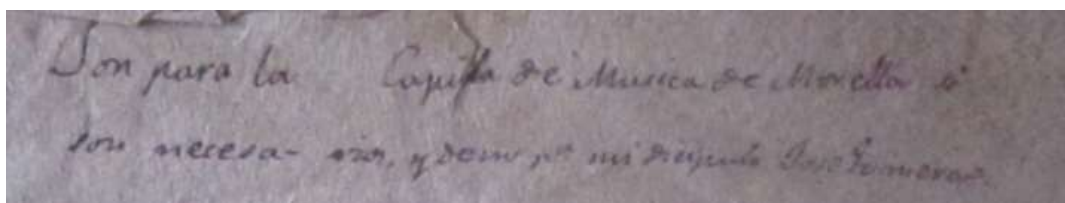 Son para la Capilla de Musica de Morella si
son necesa- rios, y deno pª mi discipulo Jose